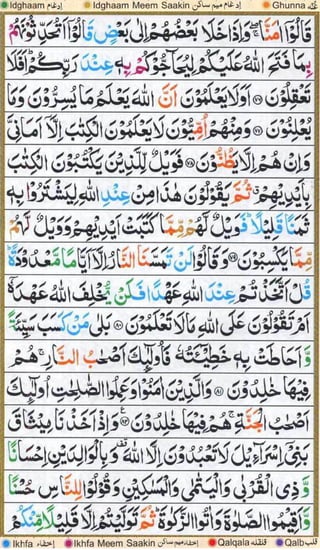 Idghaam ادغام Idghaam Meem Saakin ادغام میم ساکن Ghunna غنه
قَالُوْٓا اٰمَنَّا ۖۚ وَاِذَا خَلَا بَعْضُهُمْ اِلٰى بَعْضٍ قَالُوْٓا اَتُحَدِّثُوْنَهُمْ
بِمَا فَتَحَ اللّٰهُ عَلَيْكُمْ لِيُحَآجُّوْكُمْ بِهٖ عِنْدَ رَبِّكُمْ ؕ اَفَلَا
تَعْقِلُوْنَ ﴿۷۶﴾ اَوَلَا يَعْلَمُوْنَ اَنَّ اللّٰهَ يَعْلَمُ مَا يُسِرُّوْنَ وَمَا
يُعْلِنُوْنَ ﴿۷۷﴾ وَمِنْهُمْ اُمِّيُّوْنَ لَا يَعْلَمُوْنَ الْكِتٰبَ اِلَّآ اَمَانِىَّ
وَاِنْ هُمْ اِلَّا يَظُنُّوْنَ ﴿۷۸﴾ فَوَيْلٌ لِّلَّذِيْنَ يَكْتُبُوْنَ الْكِتٰبَ
بِاَيْدِيْهِمْ ۗ ثُمَّ يَقُوْلُوْنَ هٰذَا مِنْ عِنْدِ اللّٰهِ لِيَشْتَرُوْا بِهٖ
ثَمَنًا قَلِيْلًا ؕ فَوَيْلٌ لَّهُمْ مِّمَّا كَتَبَتْ اَيْدِيْهِمْ وَوَيْلٌ لَّهُمْ
مِّمَّا يَكْسِبُوْنَ ﴿۷۹﴾ وَقَالُوْا لَنْ تَمَسَّنَا النَّارُ اِلَّآ اَيَّامًا مَّعْدُوْدَةً ؕ
قُلْ اَتَّخَذْتُمْ عِنْدَ اللّٰهِ عَهْدًا فَلَنْ يُّخْلِفَ اللّٰهُ عَهْدَهٗٓ
اَمْ تَقُوْلُوْنَ عَلَى اللّٰهِ مَا لَا تَعْلَمُوْنَ ﴿۸۰﴾ بَلٰى مَنْ كَسَبَ سَيِّئَةً
وَّاَحَاطَتْ بِهٖ خَطِيْٓـَٔتُهٗ فَاُولٰٓئِكَ اَصْحٰبُ النَّارِ ۚ هُمْ
فِيْهَا خٰلِدُوْنَ ﴿۸۱﴾ وَالَّذِيْنَ اٰمَنُوْا وَعَمِلُوا الصّٰلِحٰتِ اُولٰٓئِكَ
اَصْحٰبُ الْجَنَّةِ ۚ هُمْ فِيْهَا خٰلِدُوْنَ ﴿۸۲﴾ وَاِذْ اَخَذْنَا مِيْثَاقَ
بَنِىْٓ اِسْرَآءِيْلَ لَا تَعْبُدُوْنَ اِلَّا اللّٰهَ ۫ وَبِالْوَالِدَيْنِ اِحْسَانًا
وَّذِى الْقُرْبٰى وَالْيَتٰمٰى وَالْمَسٰكِيْنِ وَقُوْلُوْا لِلنَّاسِ حُسْنًا
وَّاَقِيْمُوا الصَّلٰوةَ وَاٰتُوا الزَّكٰوةَ ؕ ثُمَّ تَوَلَّيْتُمْ اِلَّا قَلِيْلًا مِّنْكُمْ
Ikhfa اخفاء Ikhfa Meem Saakin اخفاء میم ساکن Qalqala قلقله Qalb قلب